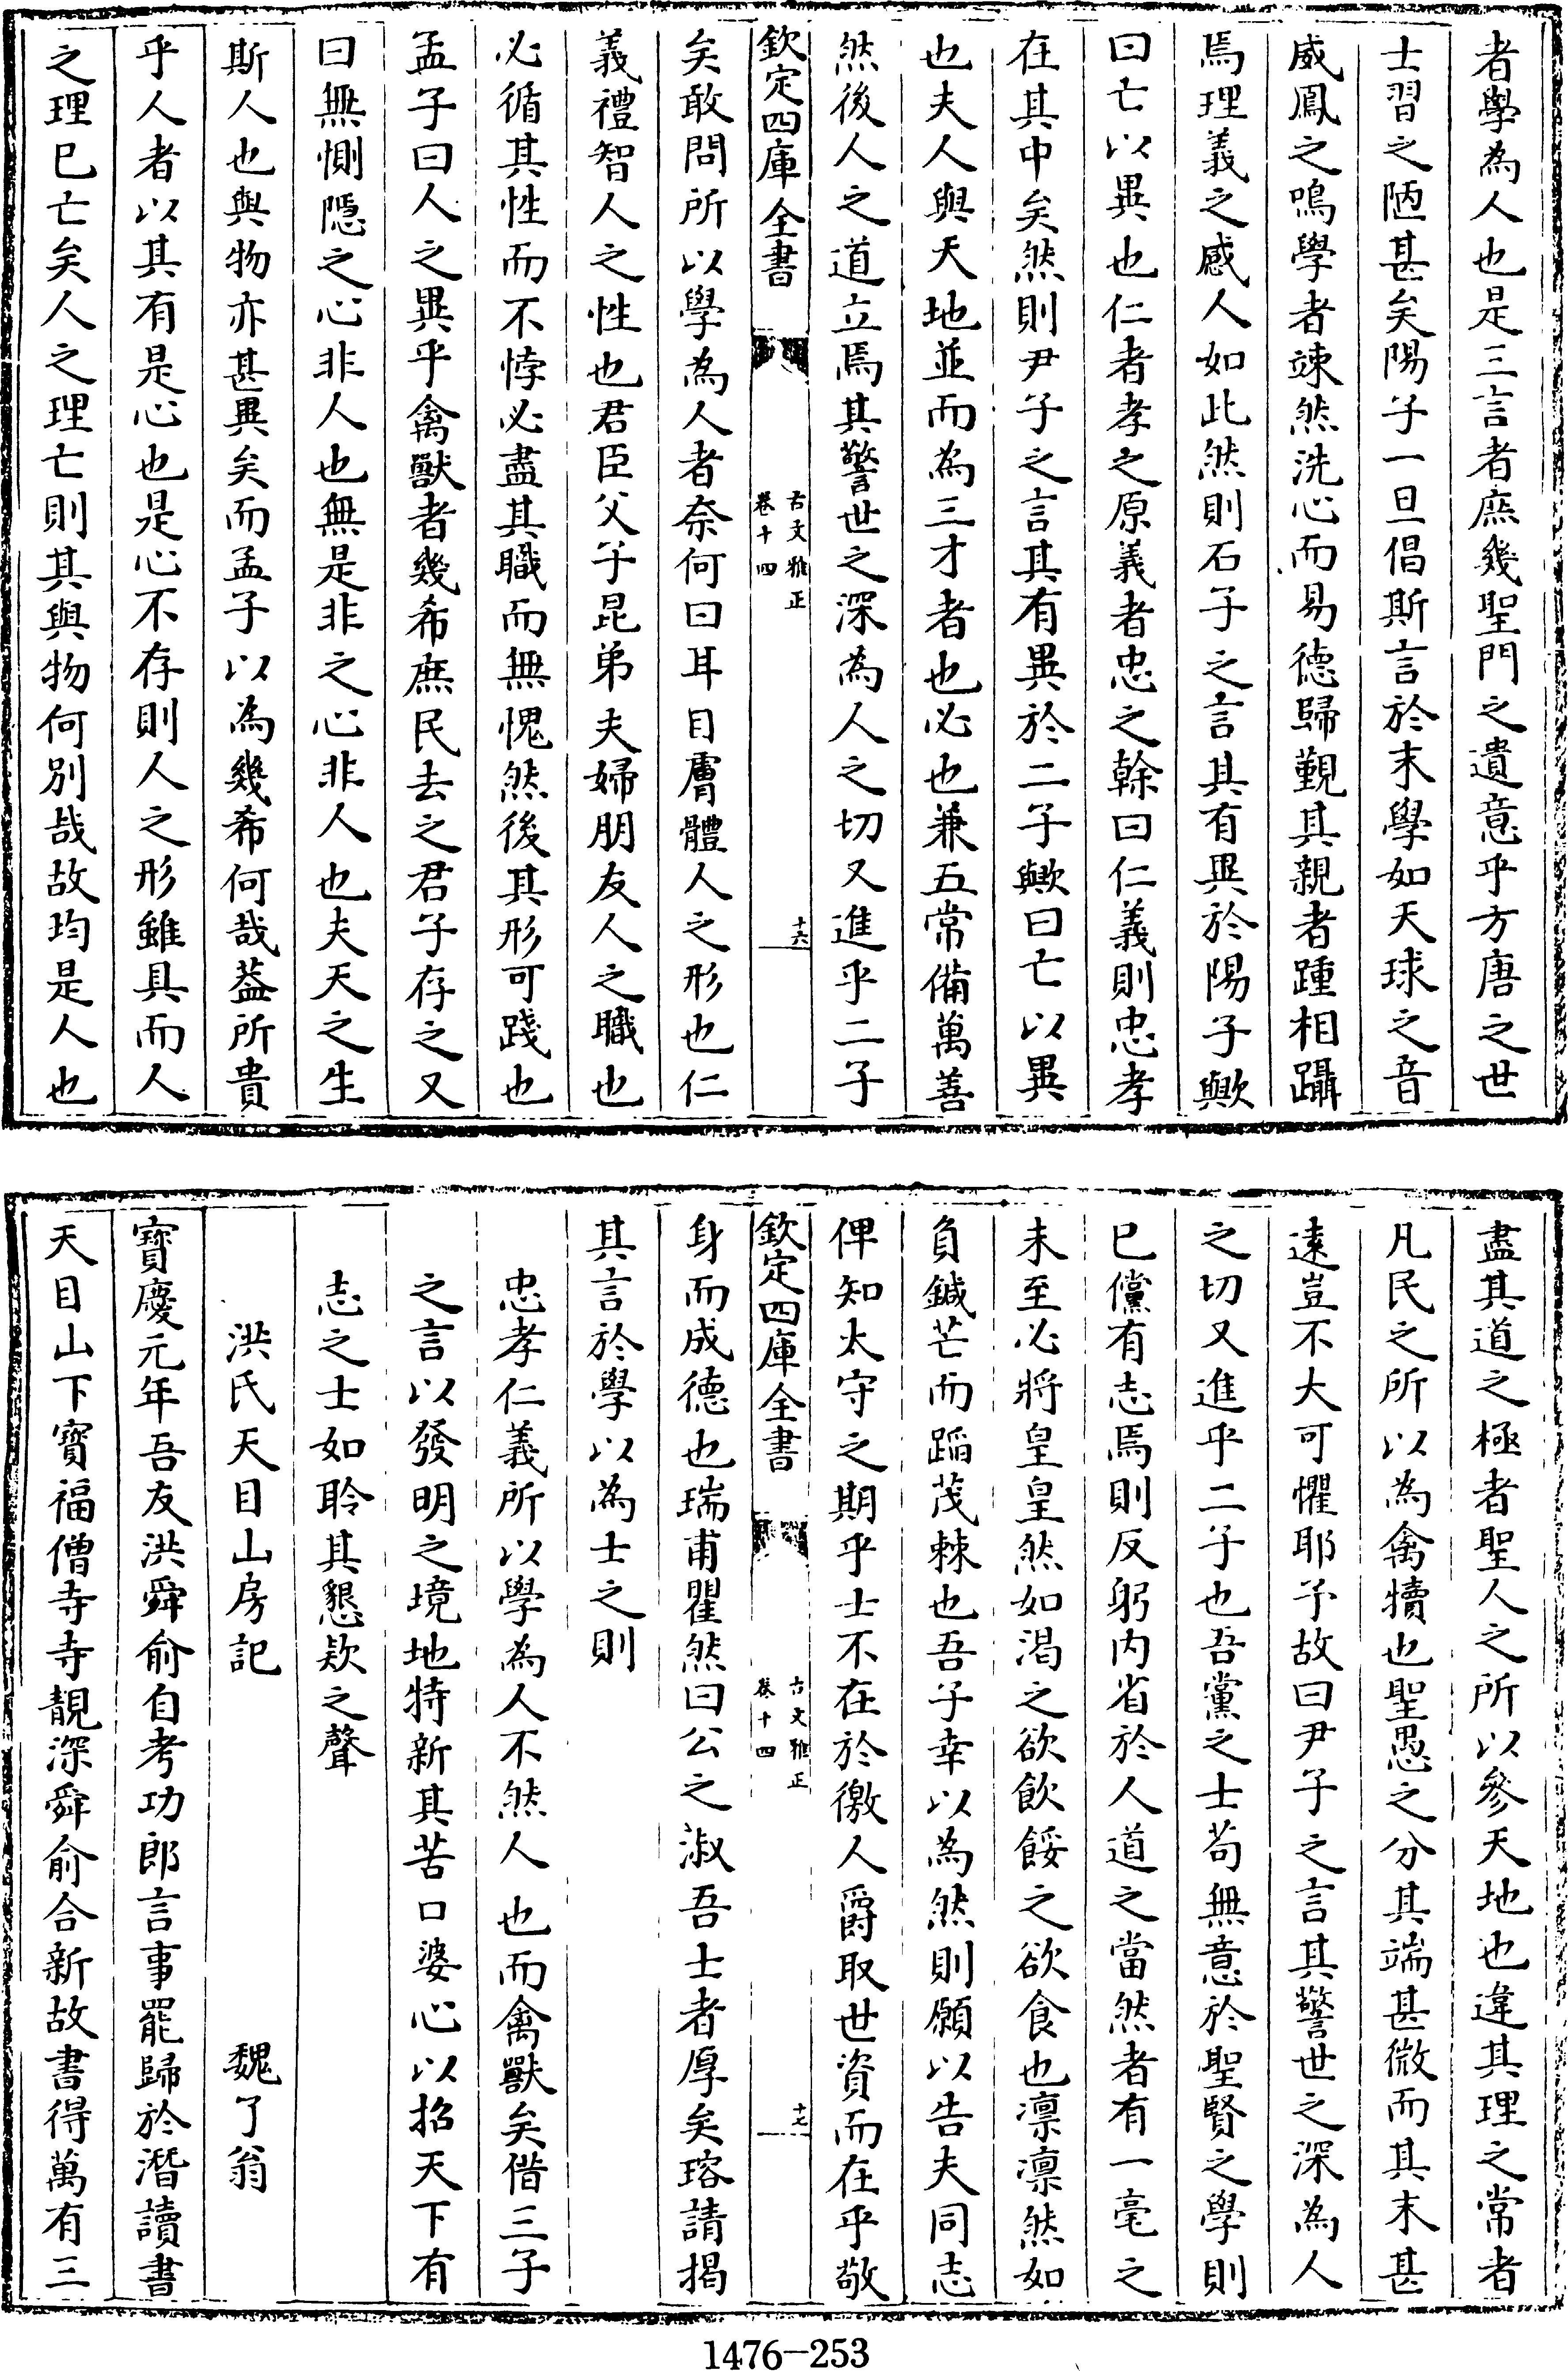 者學為人也是三言者庶幾聖門之遺意乎方唐之世
士習之陋甚矣陽子一旦倡斯言於末學如天球之音
威鳳之鳴學者竦然洗心而易德歸覲其親者踵相躡
焉理義之感人如此然則石子之言其有異於陽子歟
曰亡以異也仁者孝之原義者忠之榦曰仁義則忠孝
在其中矣然則尹子之言其有異於二子歟曰亡以異
也夫人與天地並而為三才者也必也兼五常備萬善
然後人之道立焉其警世之深為人之切又進乎二子
欽定四庫全書
古文雅正
卷十四
十六
矣敢問所以學為人者奈何曰耳目膚體人之形也仁
義禮智人之性也君臣父子昆弟夫婦朋友人之職也
必循其性而不悖必盡其職而無愧然後其形可踐也
孟子曰人之異乎禽獸者幾希庶民去之君子存之又
曰無惻隱之心非人也無是非之心非人也夫天之生
斯人也與物亦甚異矣而孟子以為幾希何哉葢所貴
乎人者以其有是心也是心不存則人之形雖具而人
之理已亡矣人之理亡則其與物何別哉故均是人也
盡其道之極者聖人之所以參天地也違其理之常者
凡民之所以為禽犢也聖愚之分其端甚微而其末甚
遠豈不大可懼耶予故曰尹子之言其警世之深為人
之切又進乎二子也吾黨之士苟無意於聖賢之學則
已儻有志焉則反躬内省於人道之當然者有一毫之
未至必將皇皇然如渴之欲飲餒之欲食也凛凛然如
負鍼芒而蹈茂棘也吾子幸以為然則願以告夫同志
俾知太守之期乎士不在於徼人爵取世資而在乎敬
欽定四庫全書
古文雅正
卷十四
十七
身而成德也瑞甫瞿然曰公之淑吾士者厚矣瑢請揭
其言於學以為士之則
忠孝仁義所以學為人不然人也而禽獸矣借三子
之言以發明之境地特新其苦口婆心以招天下有
志之士如聆其懇欵之聲
洪氏天目山房記 魏了翁
寶慶元年吾友洪舜俞自考功郎言事罷歸於潛讀書
天目山下寶福僧寺寺靚深舜俞合新故書得萬有三
1476-253